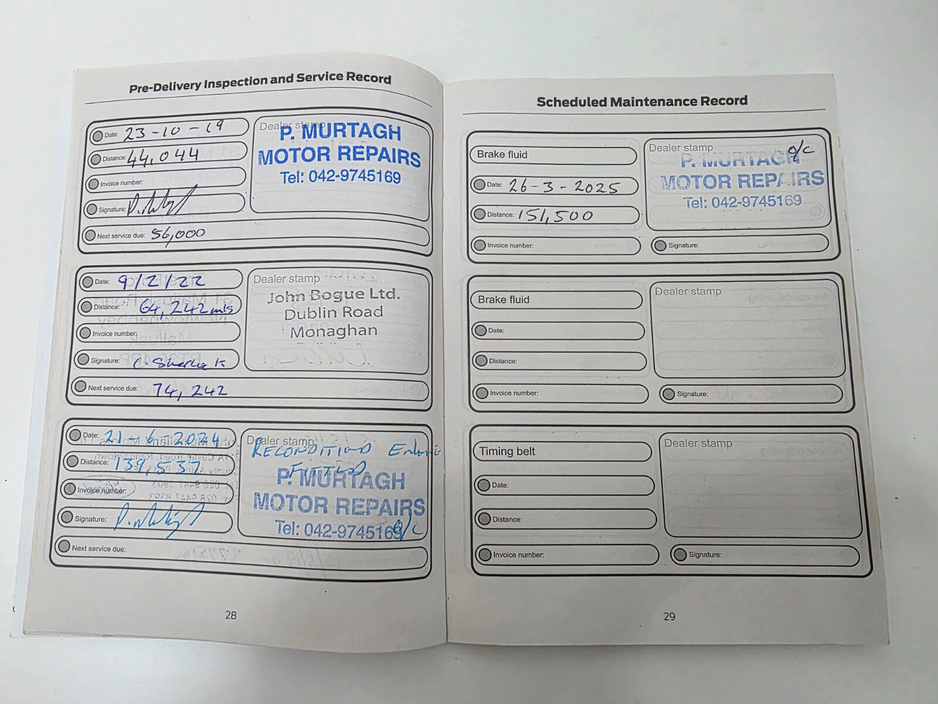 Pre-Delivery Inspection and Service Record
Date: 23-10-19
Distance: 44,044
Invoice number:
Signature:
Next service due: 56,000
Dealer stamp
P. MURTAGH
MOTOR REPAIRS
Tel: 042-9745169
Date: 9/2/22
Distance: 64,242 mls
Invoice number:
Signature:
Next service due: 74,242
Dealer stamp
John Bogue Ltd.
Dublin Road
Monaghan
Date: 21-6-2024
Distance: 139,537
Invoice number:
Signature:
Next service due:
Dealer stamp
RECONDITION ENGINE
FITTED
P. MURTAGH
MOTOR REPAIRS
Tel: 042-9745169
O/C
28
Scheduled Maintenance Record
Brake fluid
Date: 26-3-2025
Distance: 151,500
Invoice number:
Dealer stamp
O/C
P. MURTAGH
MOTOR REPAIRS
Tel: 042-9745169
Signature:
Brake fluid
Date:
Distance:
Invoice number:
Dealer stamp
Signature:
Timing belt
Date:
Distance:
Invoice number:
Dealer stamp
Signature:
29